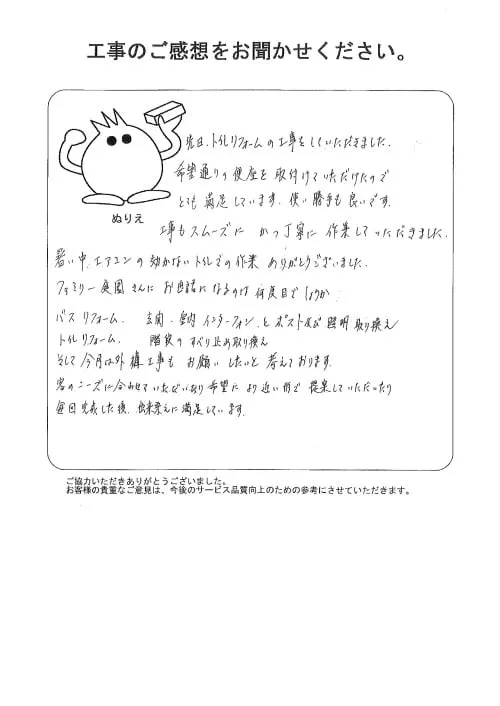 工事のご感想をお聞かせください。
先日、トイレリフォームの工事をしていただきました。
希望通りの便座を取付けていただけたので
とても満足しています。使い勝手も良いです。
ぬりえ
工事もスムーズに かつ丁寧に 作業していただきました。
暑い中、エアコンの効かないトイレでの作業 ありがとうございました。
ファミリー庭園さんに お世話になるのは 何度目でしょうか
バスリフォーム、 玄関・室内 インターフォン、と ポスト及び 照明取り換え
トイレリフォーム、 階段の すべり止め取り換え
そして 今月は外構工事も お願いしたいと 考えております。
客のニーズに合わせていただいたり 希望により近い形で 提案していただいたり
毎回完成した後、出来栄えに満足しています。
ご協力いただきありがとうございました。
お客様の貴重なご意見は、今後のサービス品質向上のための参考にさせていただきます。